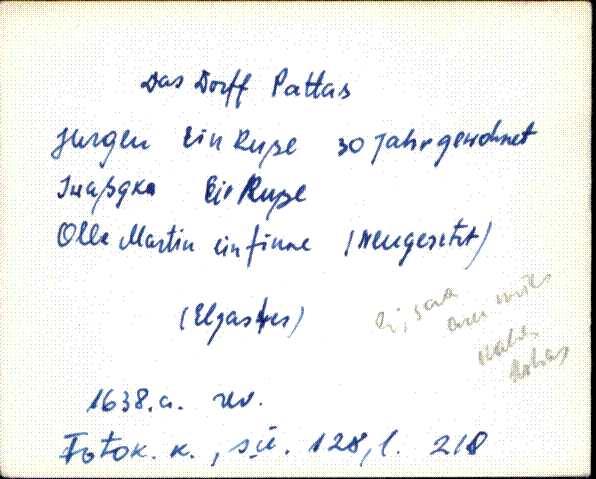 Das Dorff Pattas
Jurgen Ein Ruße 30 Jahr gewohnet
Ein Ruße
Olle Martin ein finne (Neugesetzt)
(Elgas)
ei, saa
1638.a. rev.
Fotok. k., sü. 128, l. 218